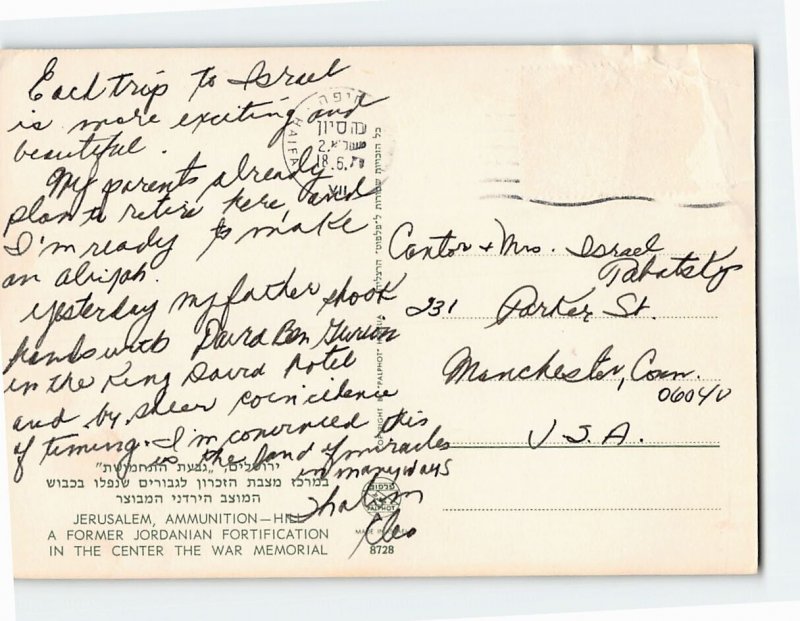 Each trip to Israel
is more exciting and
beautiful.
My parents already
plan to retire here and
I'm ready to make
an alijah.
Yesterday my father shook
hands with David Ben Gurion
in the King David Hotel
and by sheer coincidence
of timing. I'm convinced this
is the land of miracles
in many ways
Shalom
Cleo
חיפה
HAIFA
כה סיון
18.6.
VII
Cantor + Mrs. Israel
Tabatsky
231 Parker St.
Manchester, Conn.
06040
U.S.A.
ירושלים, "גבעת התחמושת"
במרכז מצבת הזכרון לגבורים שנפלו בכבוש
המוצב הירדני המבוצר
JERUSALEM, AMMUNITION—HILL
A FORMER JORDANIAN FORTIFICATION
IN THE CENTER THE WAR MEMORIAL
כל הזכויות שמורות ל"פלפוט" הרצליה
COPYRIGHT "PALPHOT"
פלפוט
PALPHOT
MADE IN ISRAEL
8728